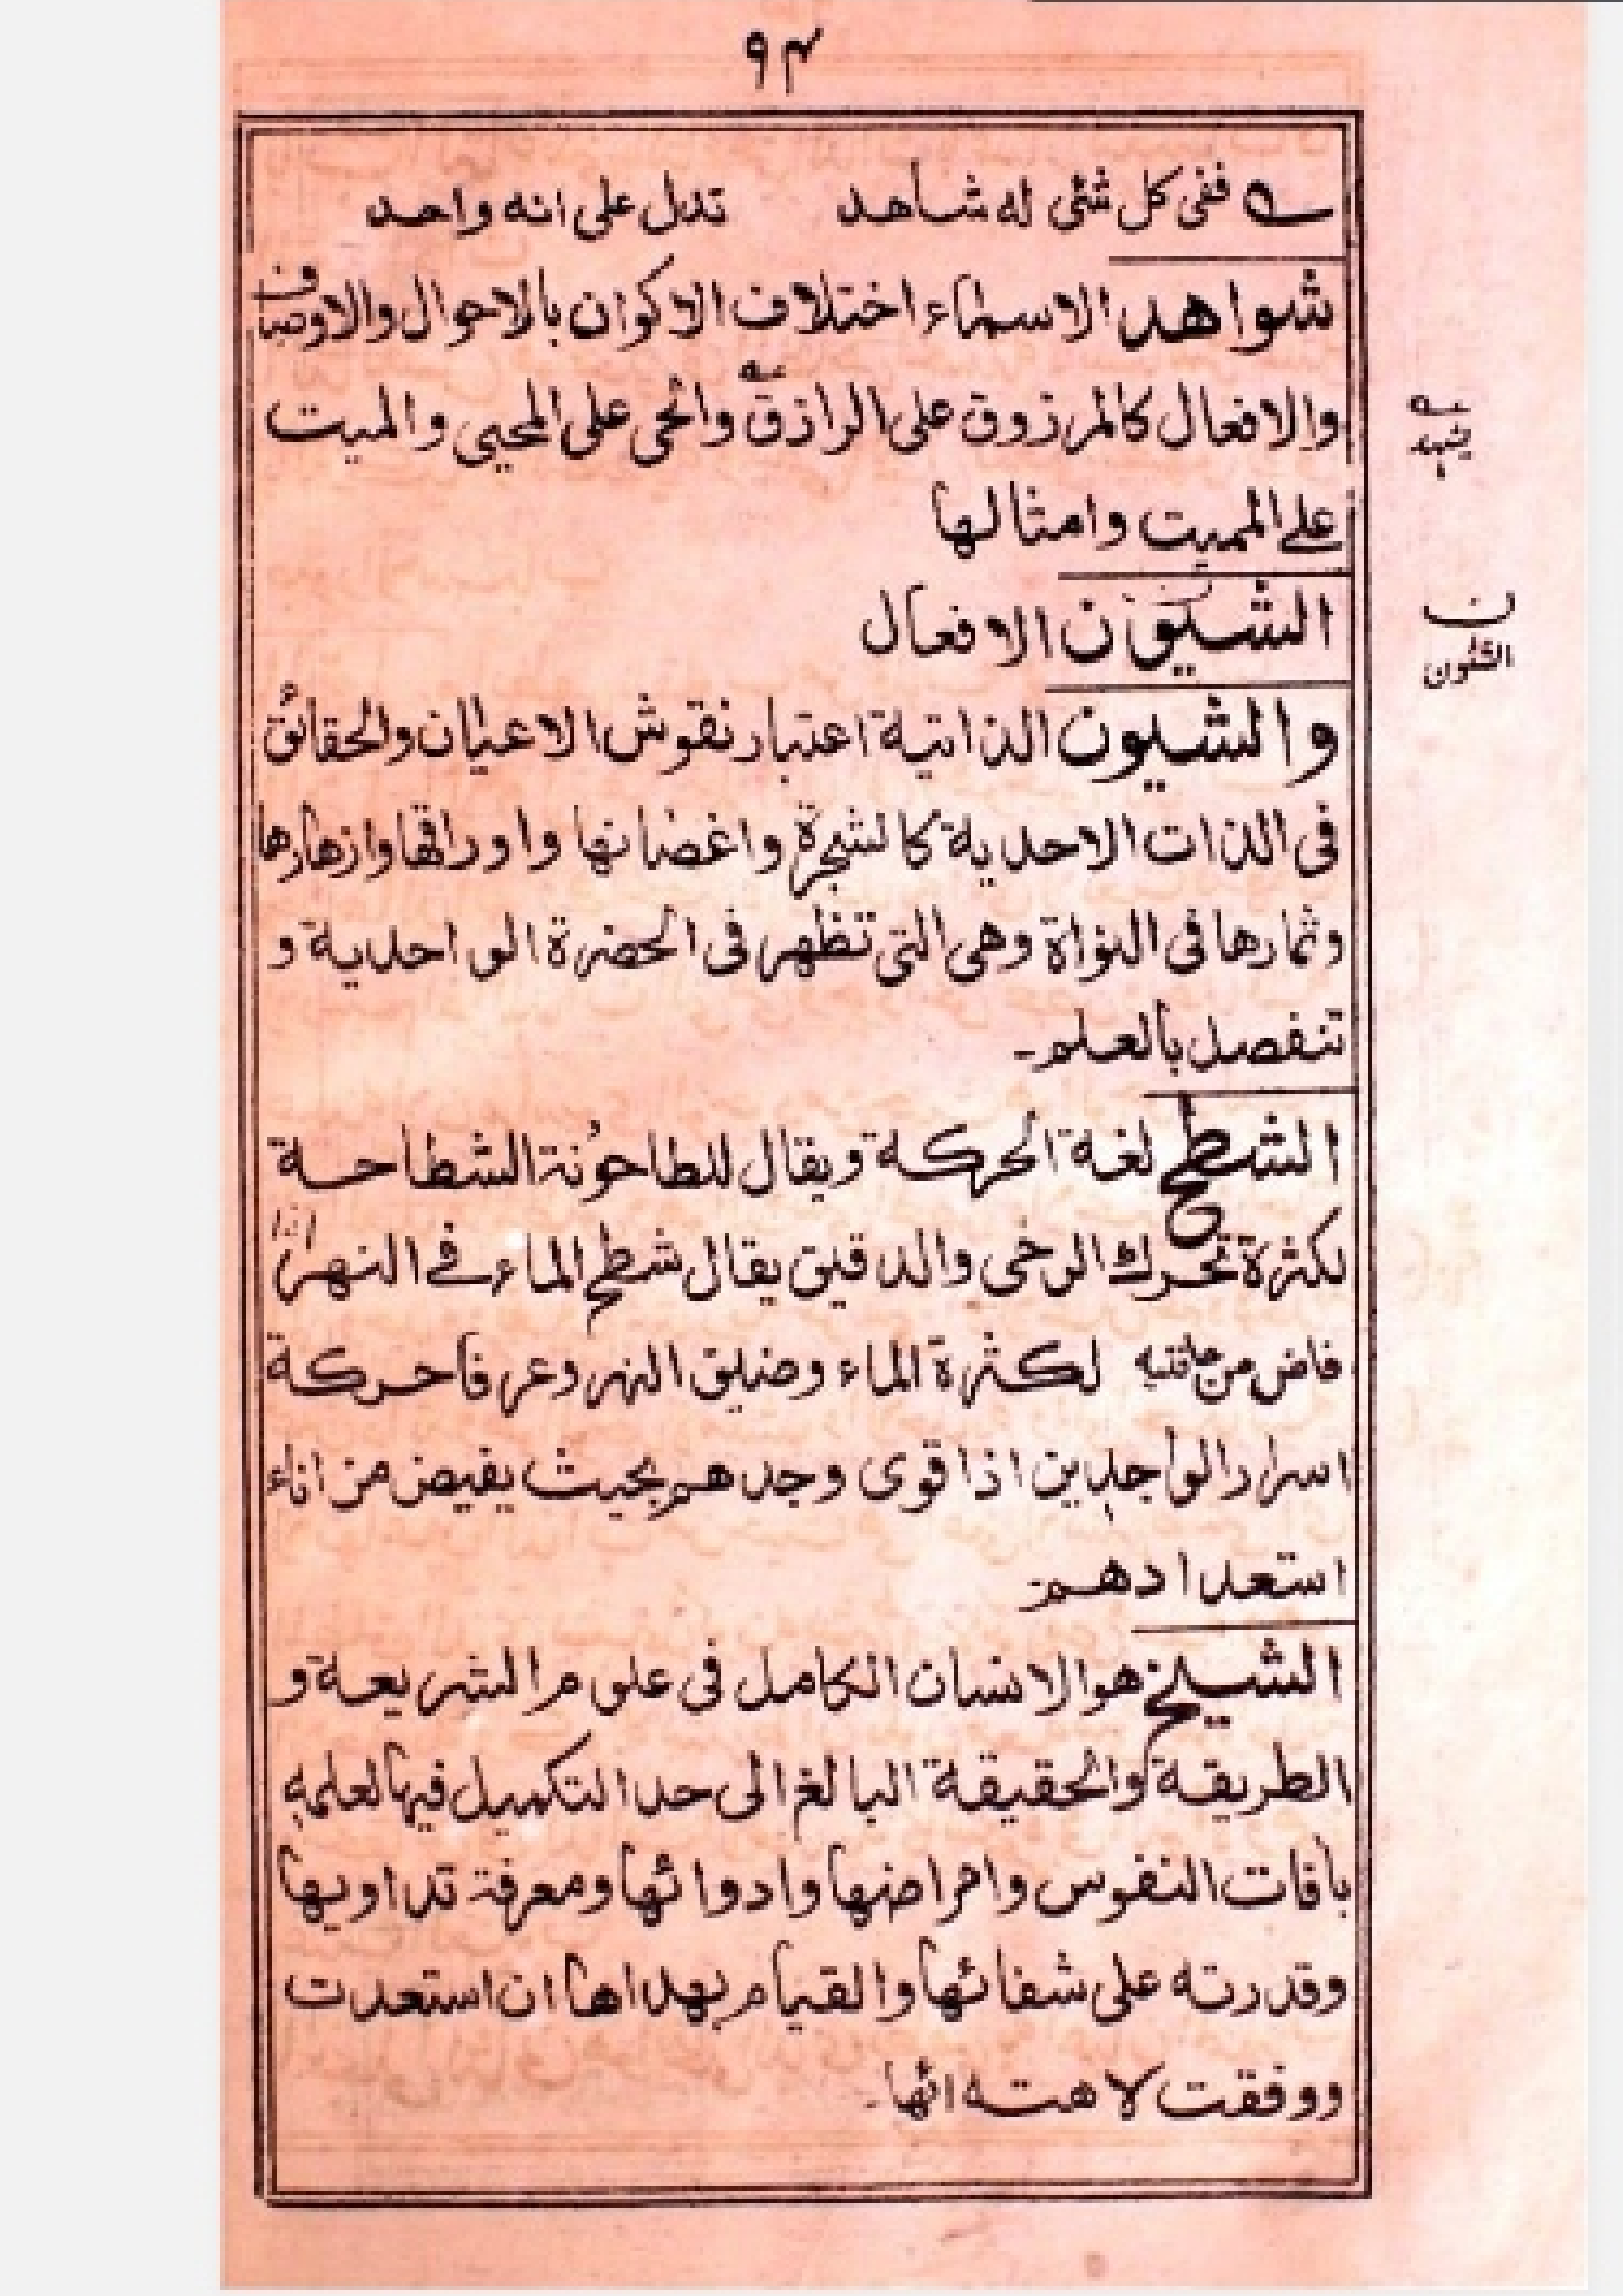 ۹۴
ففی کل شئی له شاهد تدل علی انه واحد
شواهد الاسماء اختلاف الاکوان بالاحوال والاوصاف
والافعال کالمرزوق علی الرازق والحی علی المحیی والمیت
علی الممیت وامثالها
الشیؤن الافعال
والشیون الذاتیة اعتبار نقوش الاعیان والحقائق
فی الذات الاحدیة کالشجرة واغضانها واوراقها وازهارها
وثمارها فی النواة وهی التی تظهر فی الحضرة الواحدیة و
تنفصل بالعلم۔
الشطح لغة الحرکة ویقال للطاحونة الشطاحة
لکثرة تحرك الرخی والدقیق یقال شطح الماء فی النهر اذا
فاض من حافتیه لکثرة الماء وضیق النهر وعرفا حرکة
اسرار الواجدین اذا قوی وجدهم بحیث یفیض من اناء
استعدادهم
الشیخ هو الانسان الکامل فی علوم الشریعة و
الطریقة والحقیقة البالغ الی حد التکمیل فیها لعلمه
بأفات النفوس وامراضها وادوائها ومعرفة تداویها
وقدرته علی شفائها والقیام بهداها ان استعدت
ووفقت لاهتدائها۔
یشهد
ن
الشئون